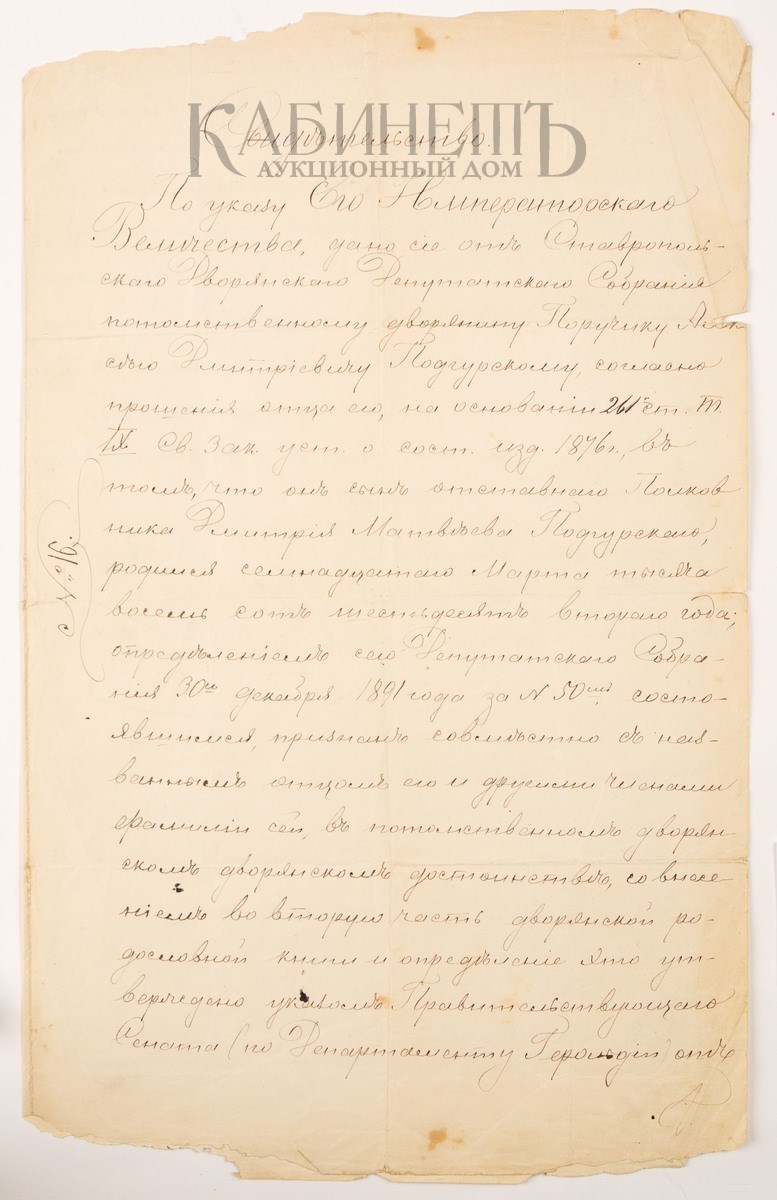 КАБИНЕТЪ
АУКЦИОННЫЙ ДОМ
Свидѣтельство.
По указу Его Императорскаго
Величества, дано сіе отъ Ставрополь-
скаго Дворянскаго Депутатскаго Собранія
потомственному дворянину Поручику Алек
сѣю Дмитріевичу Подгурскому, согласно
прошенія отца его, на основаніи 261 ст. Т.
IX Св. Зак. уст. о сост. изд. 1876 г., въ
томъ, что онъ сынъ отставнаго Полков
ника Дмитрія Матвѣева Подгурскаго,
родился семнадцатаго Марта тысяча
восемь сотъ шестьдесятъ втораго года;
опредѣленіемъ сего Депутатскаго Собра-
нія 30го декабря 1891 года за N 50мъ, состо-
явшимся, признанъ совмѣстно съ наз-
ваннымъ отцомъ его и другими членами
фамиліи сей, въ потомственномъ дворян-
скомъ дворянскомъ достоинствѣ, со внесе-
ніемъ во вторую часть дворянской ро-
дословной книги и опредѣленіе это ут-
верждено указомъ Правительствующаго
Сената (по Департаменту Герольдіи) отъ